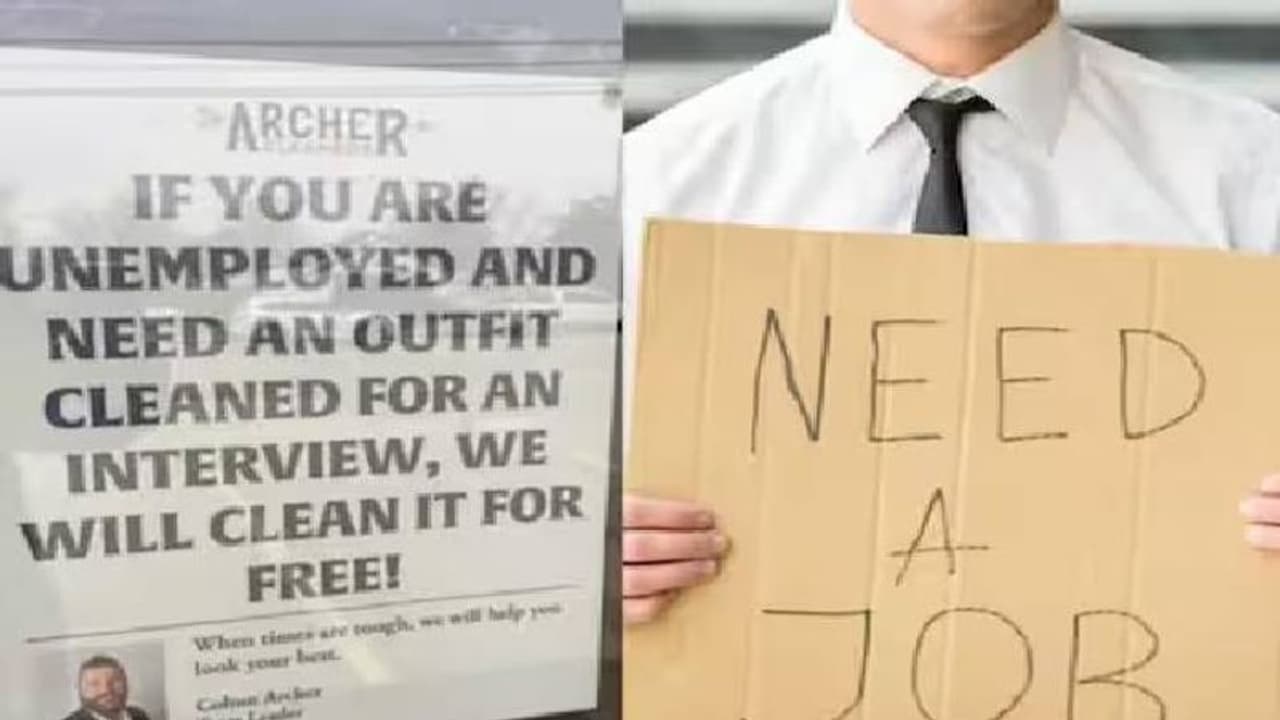 ARCHER
IF YOU ARE
UNEMPLOYED AND
NEED AN OUTFIT
CLEANED FOR AN
INTERVIEW, WE
WILL CLEAN IT FOR
FREE!
When times are tough, we will help you
look your best.
Colton Archer
Leader
NEED
A
JOB